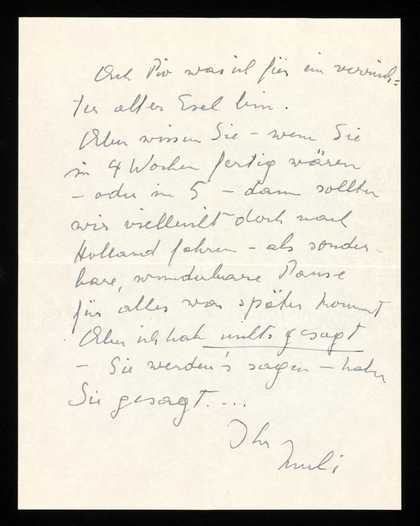 Ach Piv was ich für ein verrück=
ter alter Esel bin.
Aber wissen Sie – wenn Sie
in 4 Wochen fertig wären
– oder in 5 – dann sollten
wir vielleicht doch nach
Holland fahren – als sonder-
bare, wunderbare Pause
für alles was später kommt
Aber ich hab nichts gesagt
– Sie werden's sagen – haben
Sie gesagt....
Ihr